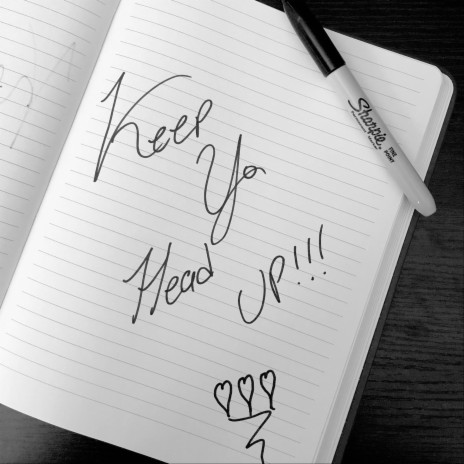 Keep
Ya
Head
UP!!!
Sharpie
FINE POINT